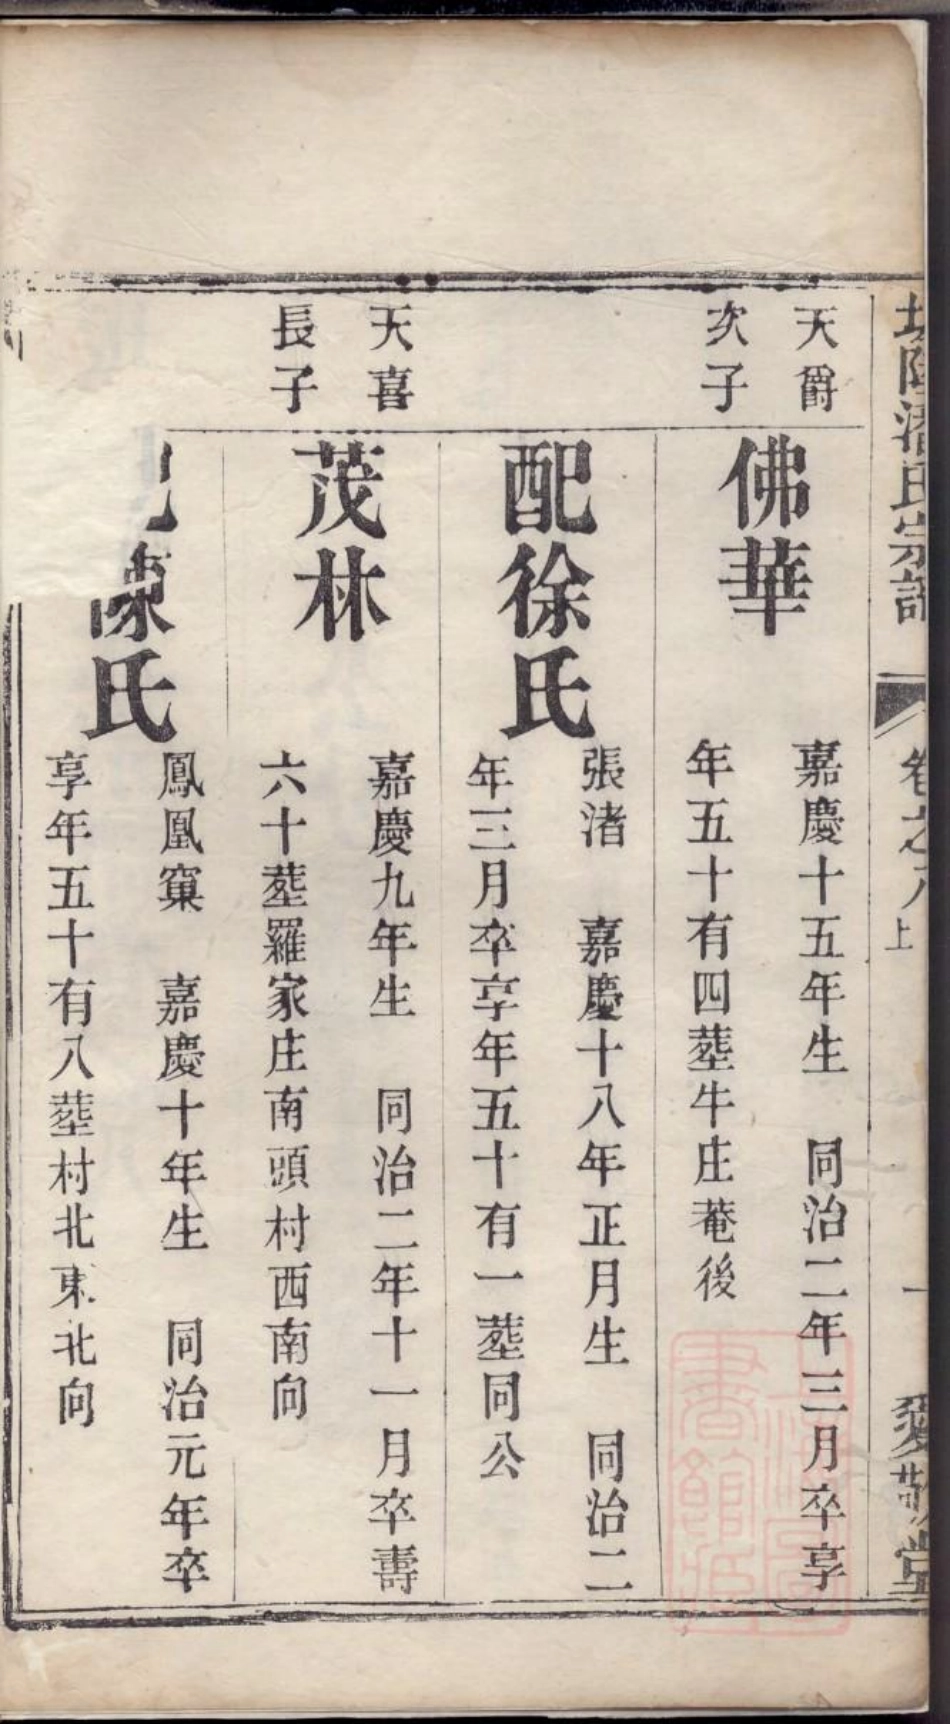 潘氏宗譜
卷之八上
一
愛敬堂
天爵
次子
佛華
嘉慶十五年生　同治二年三月卒享
年五十有四塟牛庄菴後
配徐氏
張渚　嘉慶十八年正月生　同治二
年三月卒享年五十有一塟同公
天喜
長子
茂林
嘉慶九年生　同治二年十一月卒壽
六十塟羅家庄南頭村西南向
陳氏
鳳凰窠　嘉慶十年生　同治元年卒
享年五十有八塟村北東北向